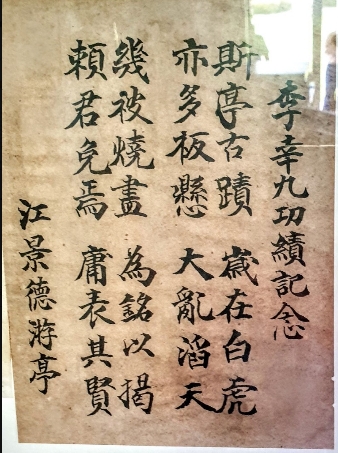 李幸九功績記念
斯亭古蹟 歲在白虎
亦多板懸 大亂滔天
幾被燒盡 為銘以揭
賴君免焉 庸表其賢
江景德游亭